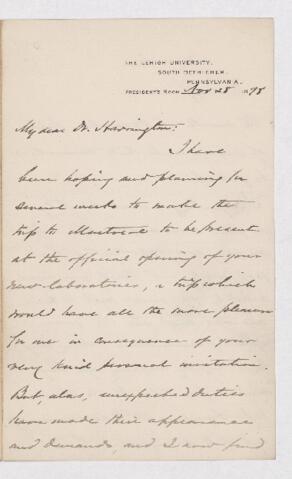 THE LEHIGH UNIVERSITY,
SOUTH BETHLEHEM,
PENNSYLVANIA.
PRESIDENT'S ROOM Nov 28 1898
My dear Dr. Harrington:
I have
been hoping and planning for
several weeks to make the
trip to Montreal to be present
at the official opening of your
new laboratories, a trip which
would have all the more pleasure
for me in consequence of your
very kind personal invitation.
But, alas, unexpected duties
have made their appearance
and demands, and I now find